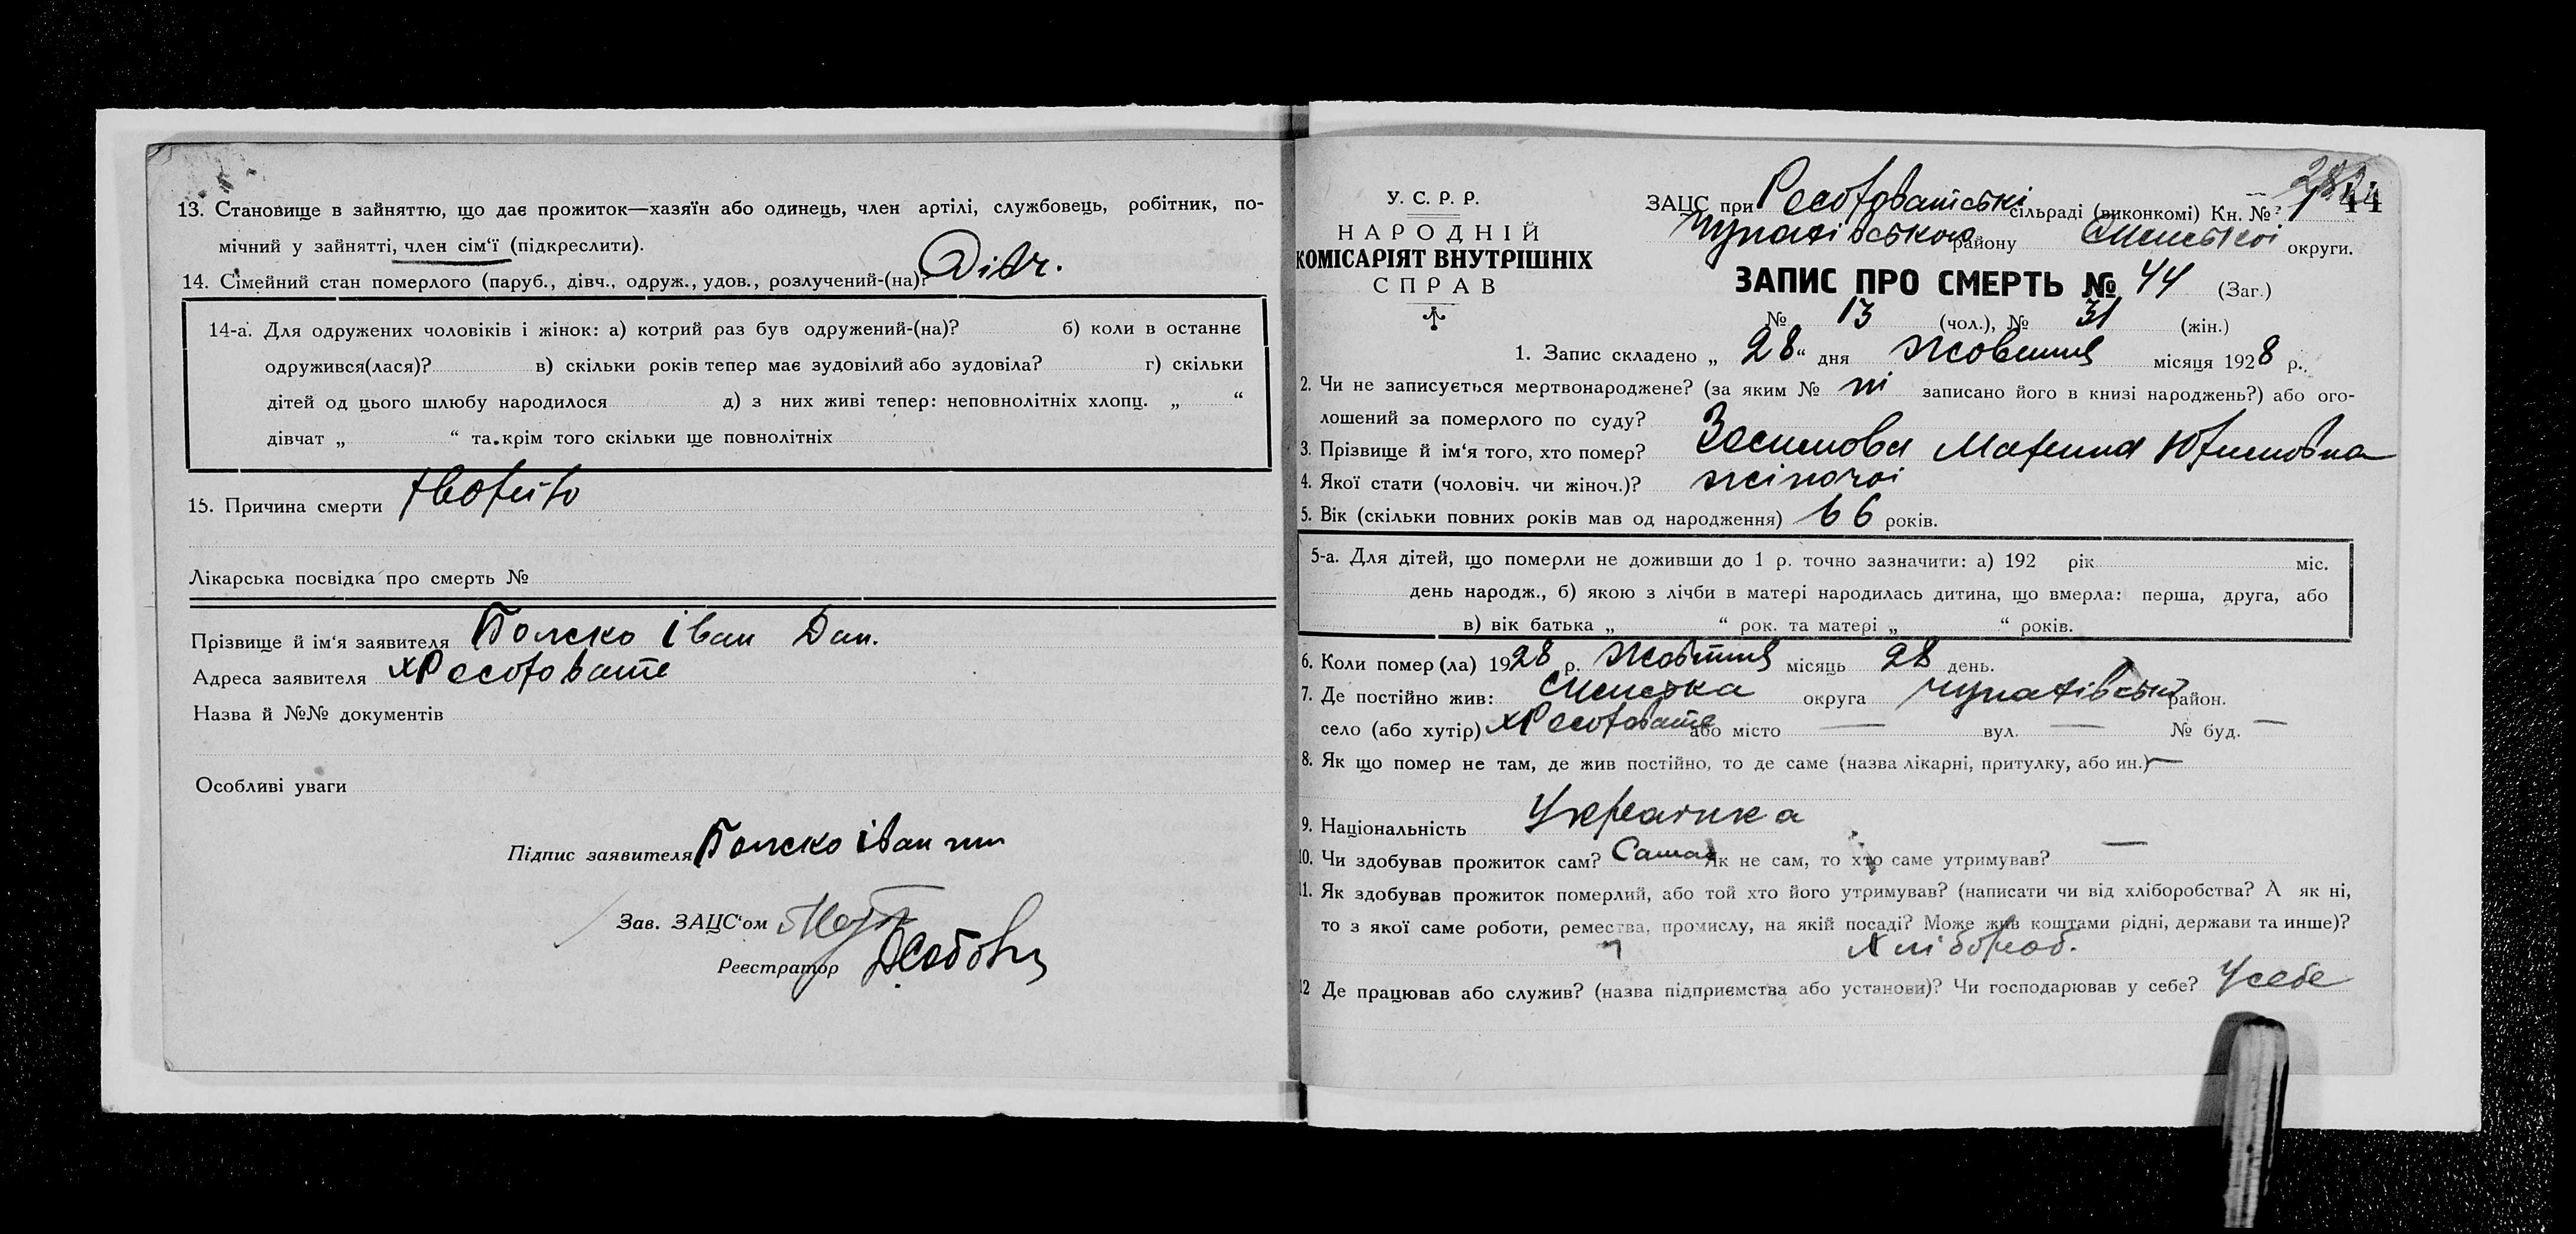 13. Становище в зайняттю, що дає прожиток—хазяїн або одинець, член артілі, службовець, робітник, по-
мічний у зайнятті, член сім'ї (підкреслити).
14. Сімейний стан померлого (паруб., дівч., одруж., удов., розлучений-(на)? Дівч.
14-а. Для одружених чоловіків і жінок: а) котрий раз був одружений-(на)? б) коли в останнє
одружився(лася)? в) скільки років тепер має зудовілий або зудовіла? г) скільки
дітей од цього шлюбу народилося д) з них живі тепер: неповнолітніх хлопц. „ “
дівчат „ “ та крім того скільки ще повнолітніх
15. Причина смерти
Лікарська посвідка про смерть №
Прізвище й ім'я заявителя Іван Дан.
Адреса заявителя
Назва й №№ документів
Особливі уваги
Підпис заявителя Іван
Зав. ЗАЦС'ом
Реєстратор
У. С. Р. Р.
НАРОДНІЙ
КОМІСАРІЯТ ВНУТРІШНІХ
СПРАВ
ЗАЦС при сільраді (виконкомі) Кн. № 1 44
району округи.
ЗАПИС ПРО СМЕРТЬ № 44 (Заг.)
№ 13 (чол.), № 31 (жін.)
1. Запис складено „ 28 “ дня Жовтня місяця 1928 р.
2. Чи не записується мертвонароджене? (за яким № ні записано його в книзі народжень?) або ого-
лошений за померлого по суду?
3. Прізвище й ім'я того, хто помер?
4. Якої стати (чоловіч. чи жіноч.)? жіночоі
5. Вік (скільки повних років мав од народження) 66 років.
5-а. Для дітей, що померли не доживши до 1 р. точно зазначити: а) 192 рік міс.
день народж., б) якою з лічби в матері народилась дитина, що вмерла: перша, друга, або
в) вік батька „ “ рок. та матері „ “ років.
6. Коли помер (ла) 1928 р. Жовтня місяць 28 день.
7. Де постійно жив: округа район.
село (або хутір) або місто — вул. — № буд. —
8. Як що помер не там, де жив постійно, то де саме (назва лікарні, притулку, або ин.) —
9. Національність Украінка
10. Чи здобував прожиток сам? Сама Як не сам, то хто саме утримував? —
11. Як здобував прожиток померлий, або той хто його утримував? (написати чи від хліборобства? А як ні,
то з якої саме роботи, ремества, промислу, на якій посаді? Може жив коштами рідні, держави та инше)?
Хлібороб.
12 Де працював або служив? (назва підприємства або установи)? Чи господарював у себе? У себе